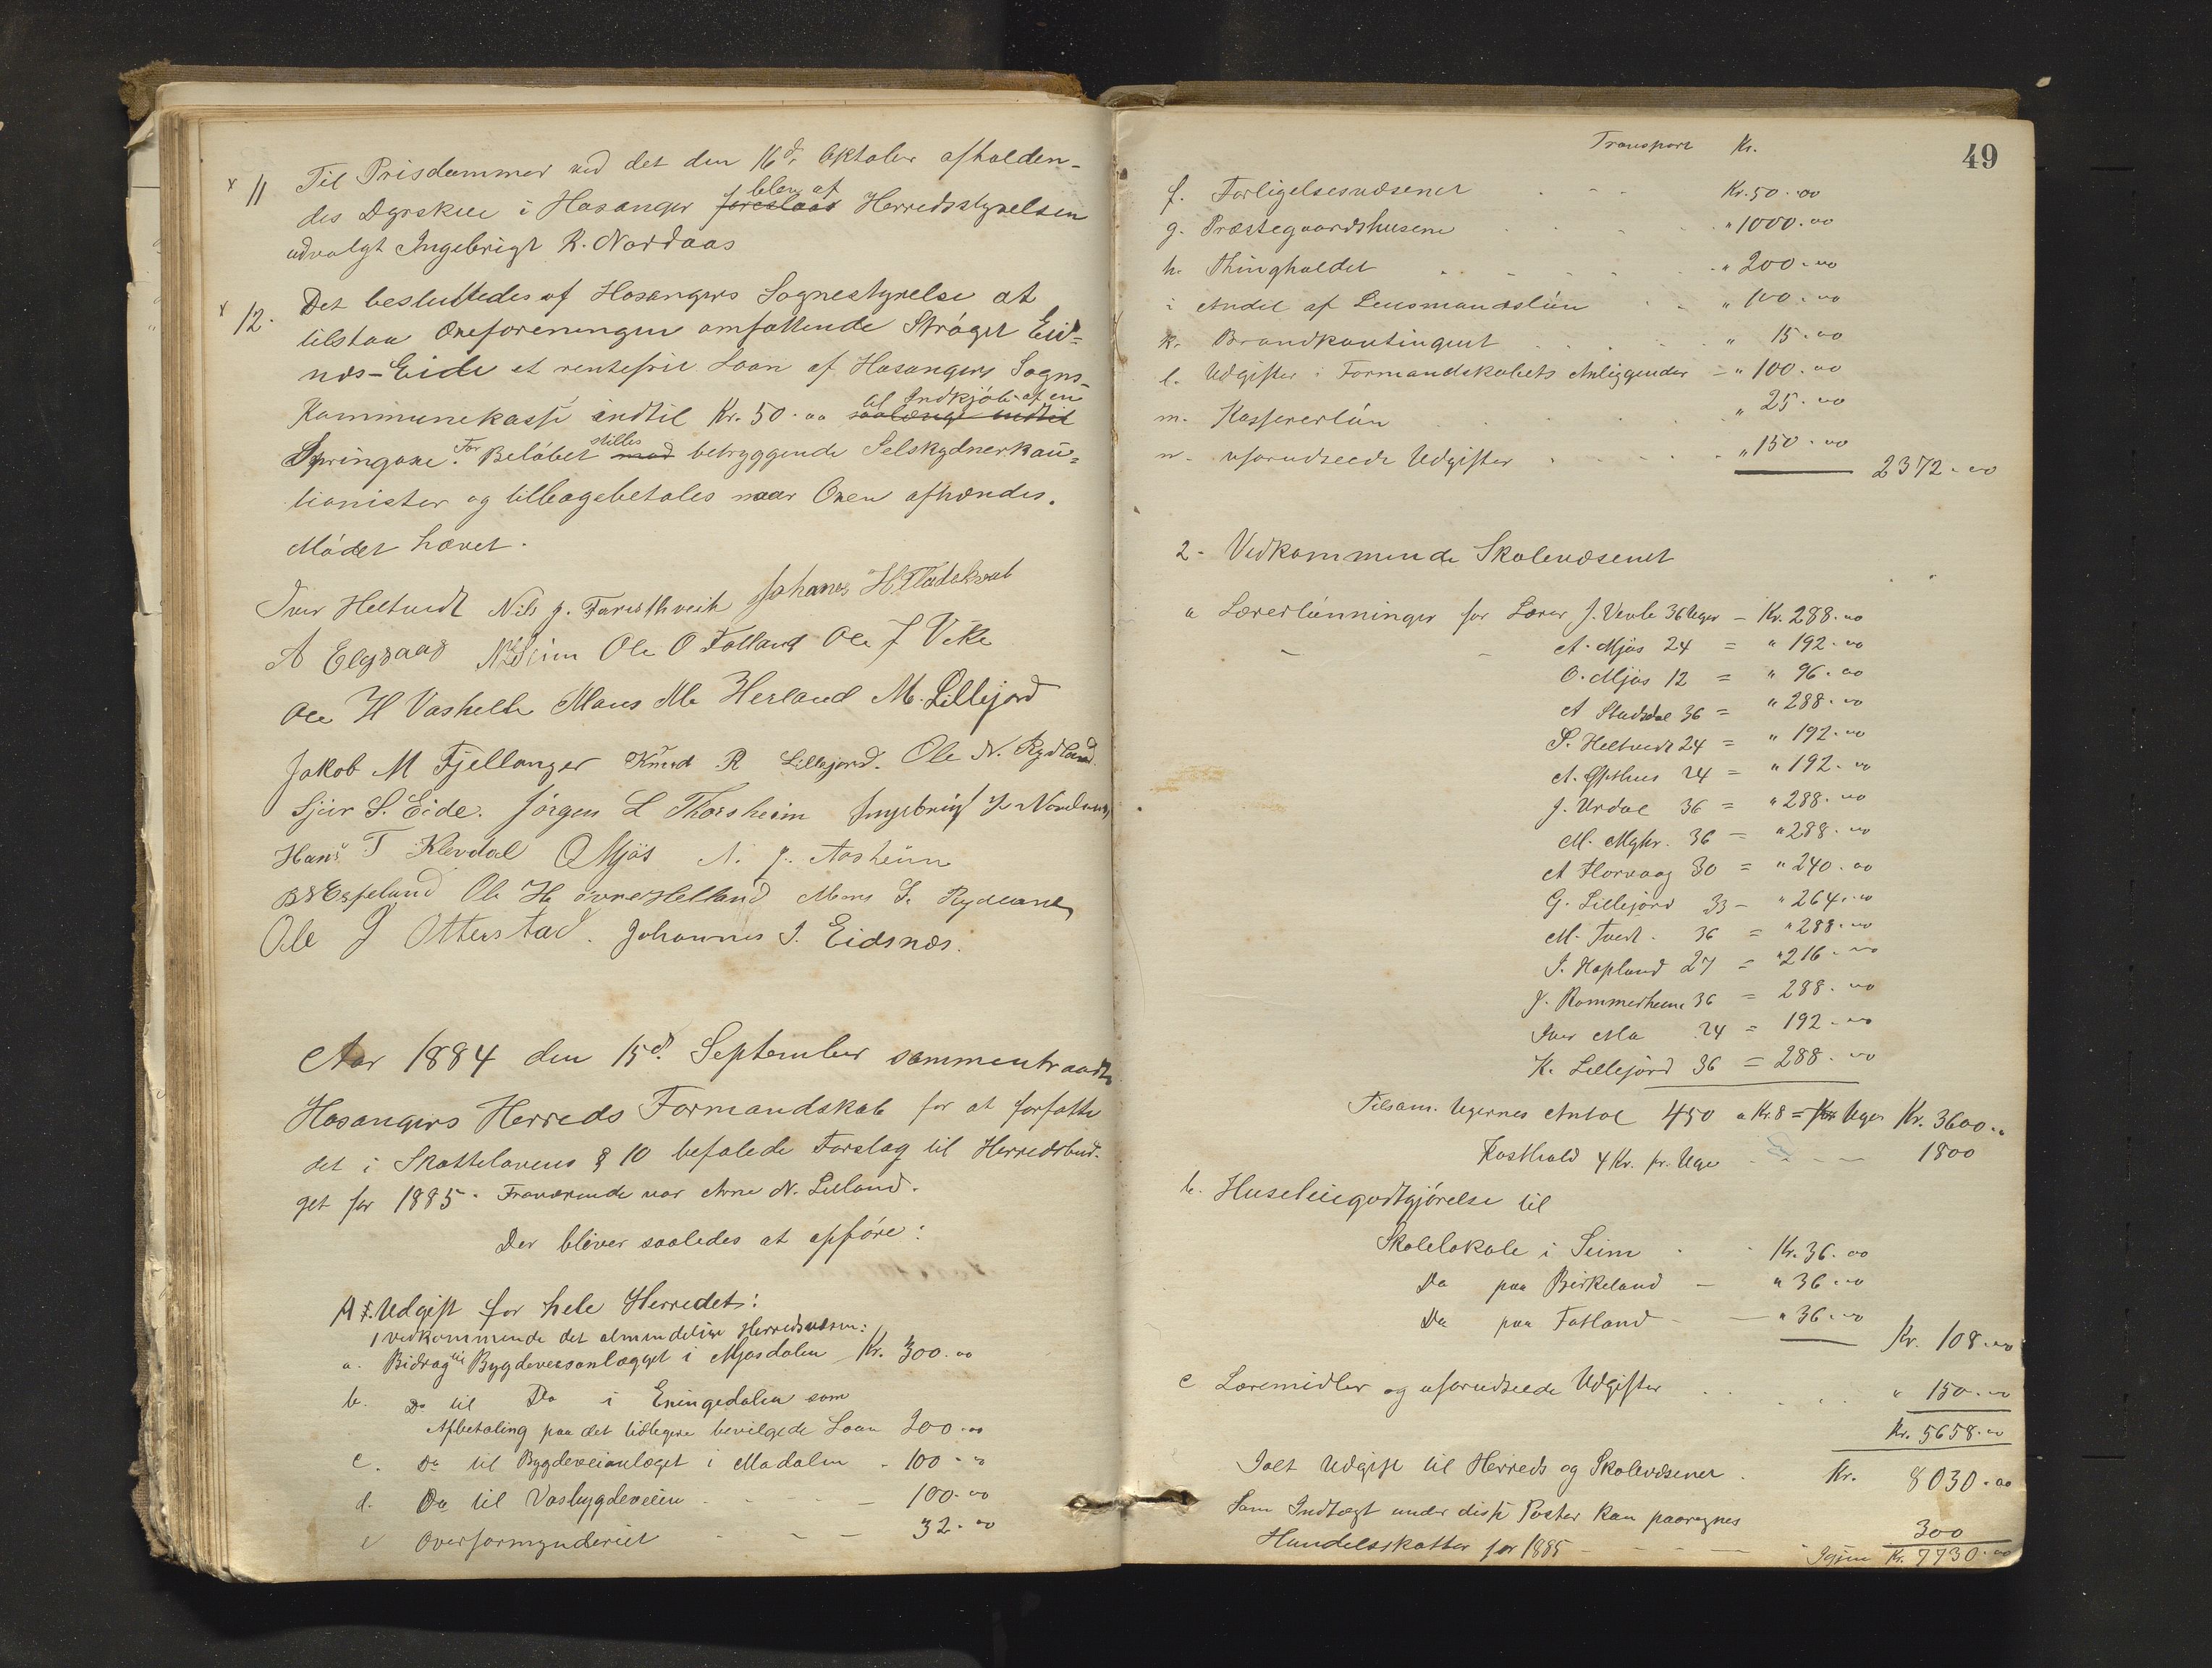 x 11 Til Prisdommer ved det den 16de Oktober afholden-
des Dyrskue i Hosanger foreslaas blev af Herredsstyrelsen
udvalgt Ingebrigt R. Nordaas
x 12. Det besluttedes af Hosangers Sognestyrelse at
tilstaa Oxeforeningen omfattende Strøget Eid-
næs-Eide et rentefrit Laan af Hosangers Sogns-
Kommunekasse indtil Kr. 50.00 saalænge indtil til Indkjøb af en
Springoxe. For Beløbet stilles mod betryggende Selskydnerkau-
tionister og tilbagebetales naar Oxen afhændes.
Mødet hævet.
Iver Heltvedt Nils J. Farestveit Johanes H Fladekval
A Elgsaas N Seim Ole O Fatland Ole J Vike
Ole H Vashelle Mons Mo Herland M. Lillejord
Jakob M Fjellanger Knud R Lillejord. Ole N. Rydland.
Sjur S. Eide. Jørgen L Thorsheim Ingebrigt Nordaas
Hans T Klevdal O Mjøs A. J. Aasheim
Espeland Ole H øvreHelland Mons S. Rydland
Ole J Otterstad. Johannes J. Eidsnæs.
Aar 1884 den 15de September sammentraadte
Hosangers Herreds Formandskab for at forfatte
det i Skattelovens § 10 befalede Forslag til Herredsbud-
get for 1885. Fraværende var Arne N. Leiland.
Der bliver saaledes at opføre:
A. Udgift for hele Herredet:
1 vedkommende det almindelige Herredsvæsen:
a. Bidrag til Bygdeveisanlægget i Mjøsdalen Kr. 300.00
b. Do til Do i Eningedalen som
Afbetaling paa det tidligere bevilgede Laan 300.00
c. Do til Bygdeveianlæget i Modalen - 100.00
d. Do til Vasbygdeveien - - - 100.00
e Overformynderiet - - - 32.00
49
Transport Kr.
f. Forligelsesvæsenet - - - Kr. 50.00
g. Præstegaardshusene . . . " 1000.00
h. Thingholdet . . . " 200.00
i Andel af Lensmandsløn - - " 100.00
k. Brandkontingent . . . " 15.00
l. Udgifter i Formandskabets Anliggender - " 100.00
m. Kassererløn . . . " 25.00
n. uforudseede Udgifter . . . " 150.00
2372.00
2. Vedkommende Skolevæsenet
a Lærerlønninger for Lærer J. Vevle 36 Uger - Kr. 288.00
A. Mjøs 24 = " 192.00
O. Mjøs 12 = " 96.00
A Stadsdal 36 = " 288.00
S. Heltvedt 24 = " 192.00
A. Øpthus 24 = " 192.00
J. Urdal 36 = " 288.00
M. Mykr. 36 - " 288.00
A Florvaag 30 = " 240.00
G. Lillejord 33 - " 264.00
M. Tvedt. 36 = " 288.00
I. Hopland 27 = " 216.00
J. Rommerheim 36 = 288.00
Iver Mo 24 = 192.00
K. Lillejord 36 = 288.00
Tilsam. Ugernes Antal 450 a Kr. 8 = Uger Kr. 3600.00
Kosthold 4 Kr. pr. Uge - - - 1800
b. Huseleiegodtgjørelse til
Skolelokale i Seim - - Kr. 36.00
Do paa Birkeland - " 36.00
Do paa Fatland - - " 36.00
Kr. 108.00
c Læremidler og uforudseede Udgifter . . . " 150.00
Kr. 5658.00
Ialt Udgift til Herreds og Skolevæsenet. Kr. 8030.00
Som Indtægt under disse Poster kan paaregnes
Handelsskatter for 1885 - - - 300
Igjen Kr. 7730.00